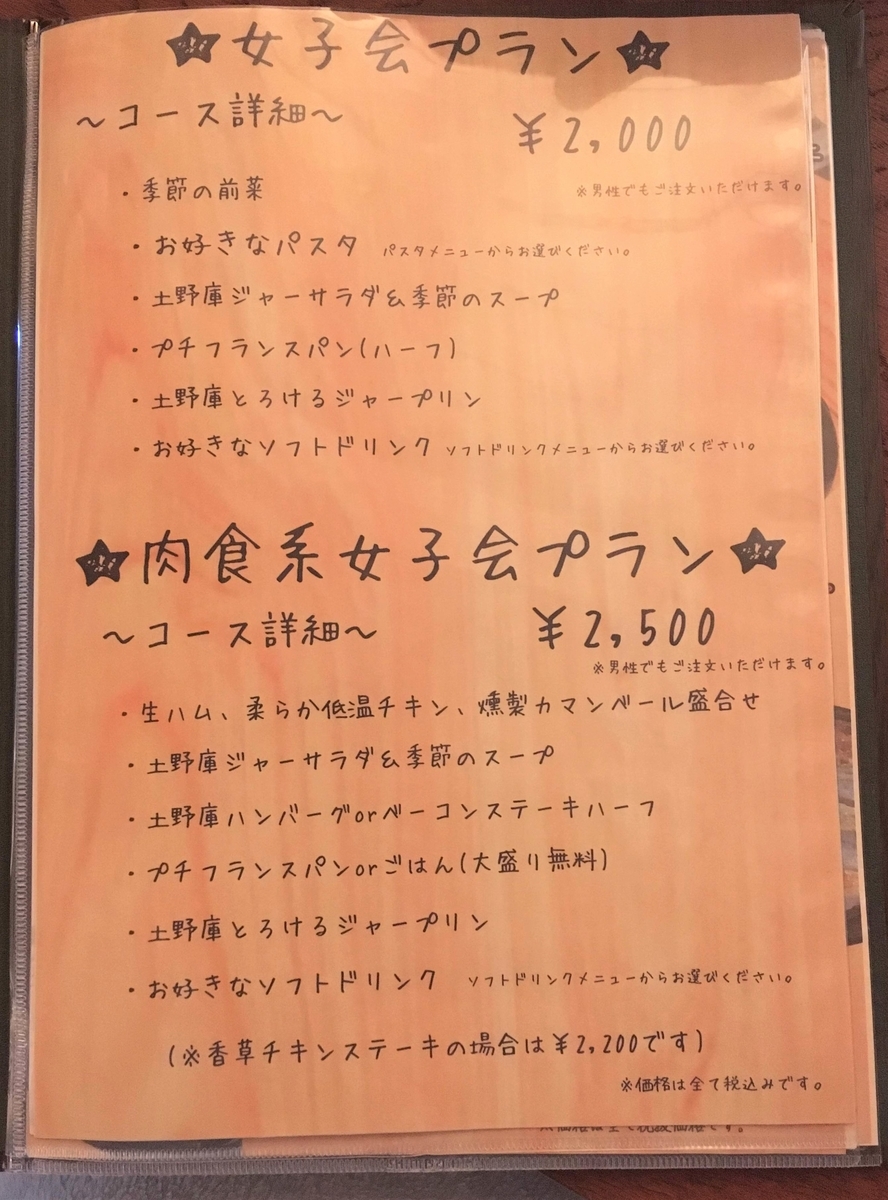 ★女子会プラン★
～コース詳細～
¥2,000
※男性でもご注文いただけます。
・季節の前菜
・お好きなパスタ パスタメニューからお選びください。
・土野庫ジャーサラダ&季節のスープ
・プチフランスパン(ハーフ)
・土野庫とろけるジャープリン
・お好きなソフトドリンク ソフトドリンクメニューからお選びください。
★肉食系女子会プラン★
～コース詳細～
¥2,500
※男性でもご注文いただけます。
・生ハム、柔らか低温チキン、燻製カマンベール盛合せ
・土野庫ジャーサラダ&季節のスープ
・土野庫ハンバーグorベーコンステーキハーフ
・プチフランスパンorごはん(大盛り無料)
・土野庫とろけるジャープリン
・お好きなソフトドリンク ソフトドリンクメニューからお選びください。
(※香草チキンステーキの場合は¥2,200です)
※価格は全て税込みです。